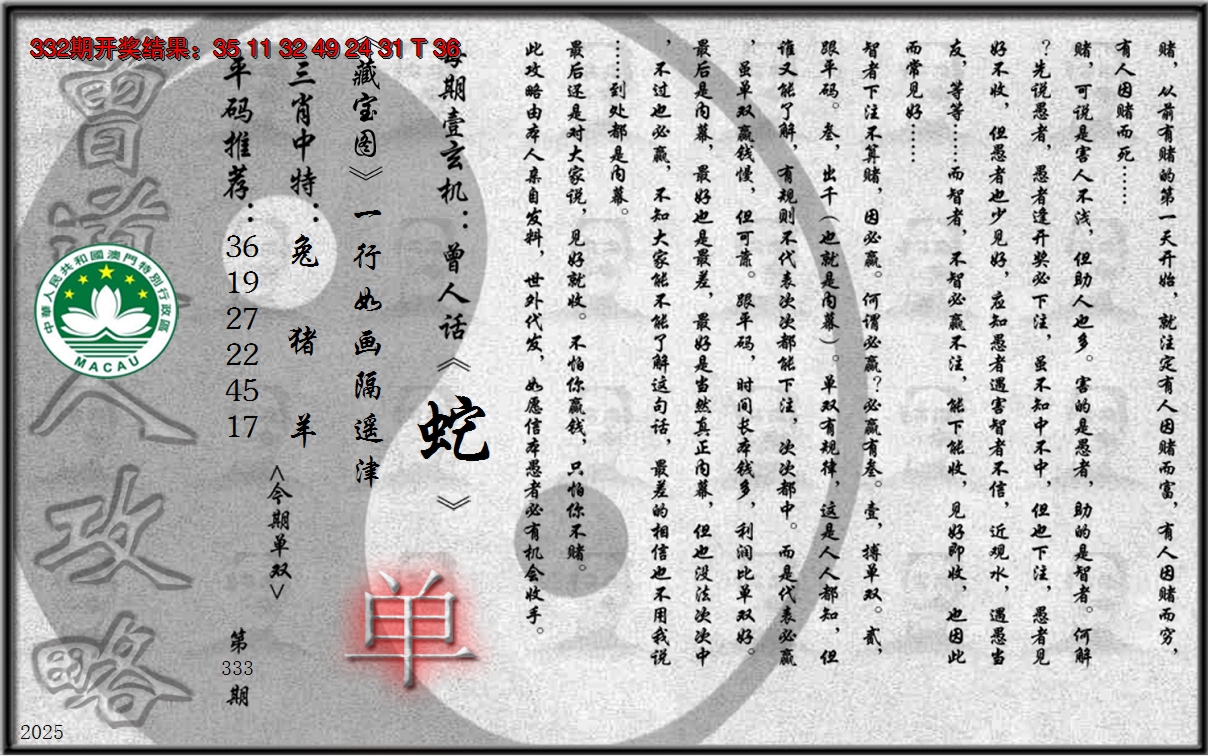 332期开奖结果：35 11 32 49 24 31 T 36
赌，从前有赌的第一天开始，就注定有人因赌而富，有人因赌而穷，
有人因赌而死……
赌，可说是害人不浅，但助人也多。害的是愚者，助的是智者。何解
？先说愚者，愚者逢开奖必下注，虽不知中不中，但也下注，愚者见
好不收，但愚者也少见好，应知愚者遇害智者不信，近观水，遇愚当
友，等等……而智者，不智必赢不注，能下能收，见好即收，也因此
而常见好……
智者下注不算赌，因必赢。何谓必赢？必赢有叁。壹，搏单双。贰，
跟平码。叁，出千（也就是内幕）。单双有规律，这是人人都知，但
谁又能了解，有规则不代表次次都能下注，次次都中。而是代表必赢
，虽单双赢钱慢，但可靠。跟平码，时间长本钱多，利润比单双好。
最后是内幕，最好也是最差，最好是当然真正内幕，但也没法次次中
，不过也必赢，不知大家能不能了解这句话，最差的相信也不用我说
……到处都是内幕。
最后还是对大家说，见好就收。不怕你赢钱，只怕你不赌。
此攻略由本人亲自发料，世外代发，如愿信本愚者必有机会收手。
每期壹玄机：曾人话《蛇》
《藏宝图》一行如画隔遥津
三肖中特：兔 猪 羊
平码推荐：36 19 27 22 45 17
<今期单双>
单
第333期
曾道人攻略
中華人民共和國澳門特別行政區
MACAU
2025